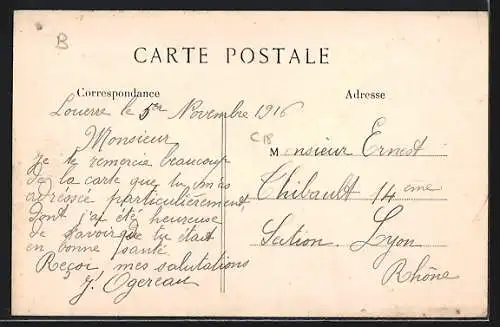 B
CARTE POSTALE
Correspondance
Louerre le 5er Novembre 1916
Monsieur
Je te remercie beaucoup
de la carte que tu m'as
adréssée particulièrement,
dont j'ai été heureuse
de savoir que tu était
en bonne santé
Reçoi mes salutations
J. Ogereau
Adresse
C18
Monsieur Ernest
Thibault 14ème
Section. Lyon
Rhône